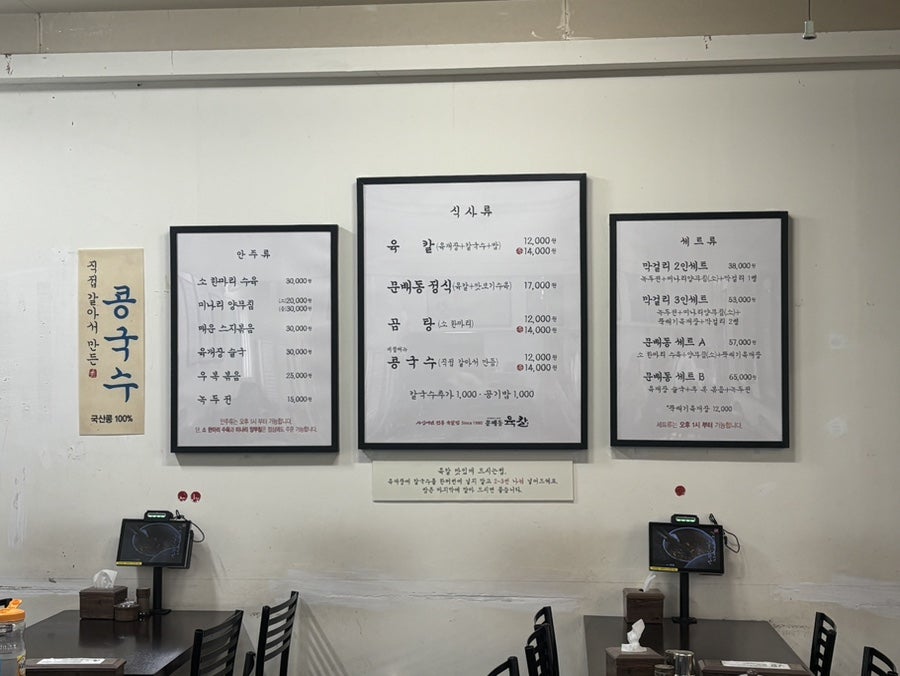 직접 갈아서 만든
콩국수
국산콩 100%
안주류
소 한마리 수육 30,000원
미나리 양무침 (소)20,000원
(중)30,000원
매운 스지볶음 30,000원
육개장 술국 30,000원
우 복 볶음 25,000원
녹두전 15,000원
안주류는 오후 1시 부터 가능합니다.
단, 소 한마리 수육과 미나리 양무침은 점심에도 주문 가능합니다.
식사류
육칼(육개장+칼국수+밥) 12,000원
특14,000원
문배동 정식(육칼+맛보기수육) 17,000원
곰탕(소 한마리) 12,000원
특14,000원
계절메뉴
콩국수(직접 갈아서 만듦) 12,000원
특14,000원
칼국수추가 1,000 · 공기밥 1,000
Since 1980 문배동 육칼
육칼 맛있게 드시는법.
육개장에 칼국수를 한꺼번에 넣지 말고 2~3번 나눠 넣어드세요.
밥은 마지막에 말아 드시면 좋습니다.
세트류
막걸리 2인세트 38,000원
녹두전+미나리양무침(소)+막걸리 1병
막걸리 3인세트 53,000원
녹두전+미나리양무침(소)+
뚝배기육개장+막걸리 2병
문배동 세트 A 57,000원
소 한마리 수육+양무침(소)+뚝배기육개장
문배동 세트 B 65,000원
육개장 술국+우 복 볶음+녹두전
*뚝배기육개장 12,000
세트류는 오후 1시 부터 가능합니다.